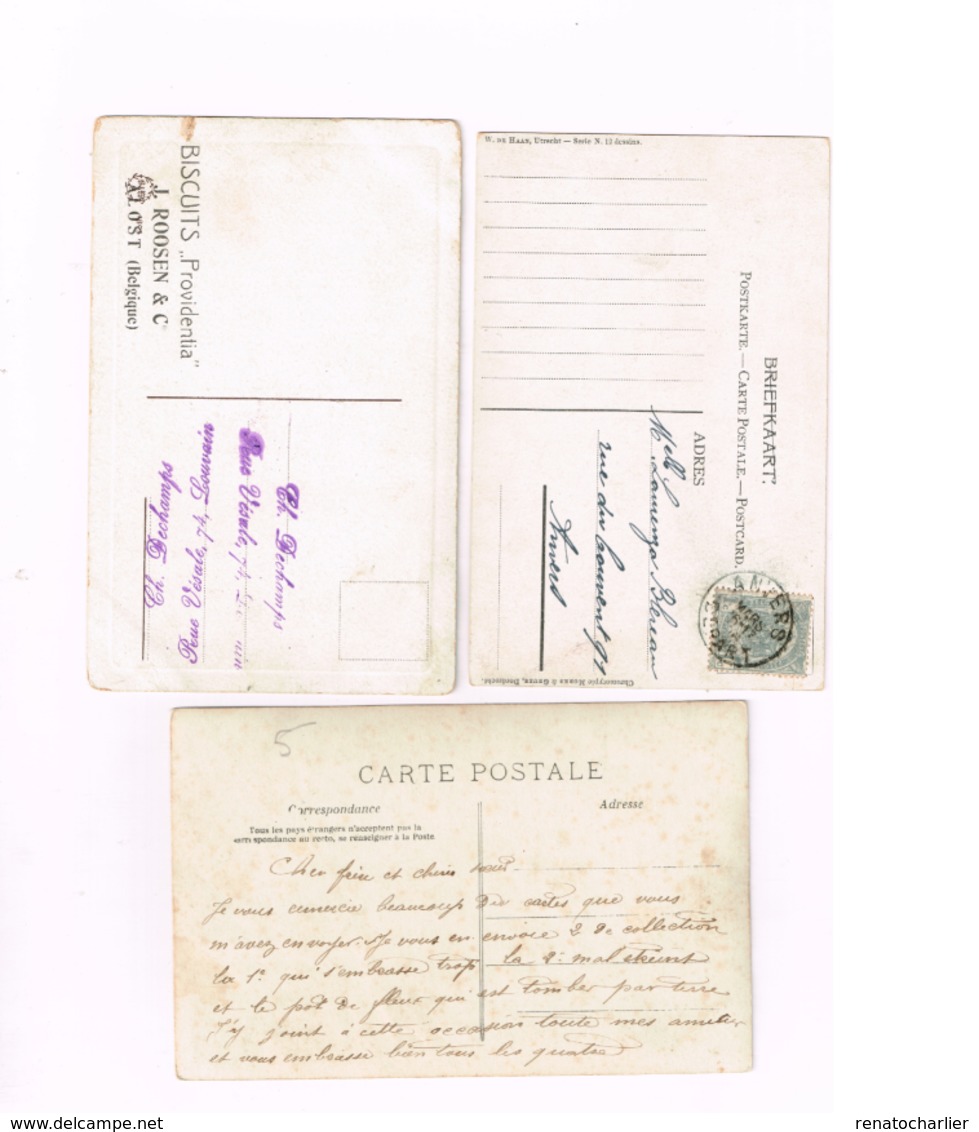 BISCUITS „Providentia"
J. ROOSEN & C
ALOST (Belgique)
Ch. Dechamps
Rue Vésale, 74.
Ch. Dechamps
Rue Vésale, 74, Louvain
W. DE HAAN, Utrecht — Serie N. 12 dessins.
BRIEFKAART.
POSTKARTE. — CARTE POSTALE. — POSTCARD.
ADRES
Melle
rue du Couvent 91
Anvers
ANVERS
DÉPART
5
CARTE POSTALE
Correspondance
Adresse
Tous les pays étrangers n'acceptent pas la
correspondance au recto, se renseigner à la Poste
Cher frère et chère sœur
Je vous remercie beaucoup des cartes que vous
m'avez envoyer. Je vous en envoie 2 de collection
la 1e qui s'embrasse trop la 2e mal
et le pot de fleur qui est tomber par terre
J'y joint à cette occasion toute mes amitier
et vous embrasse bien tous les quatre
renatocharlier
www.delcampe.net